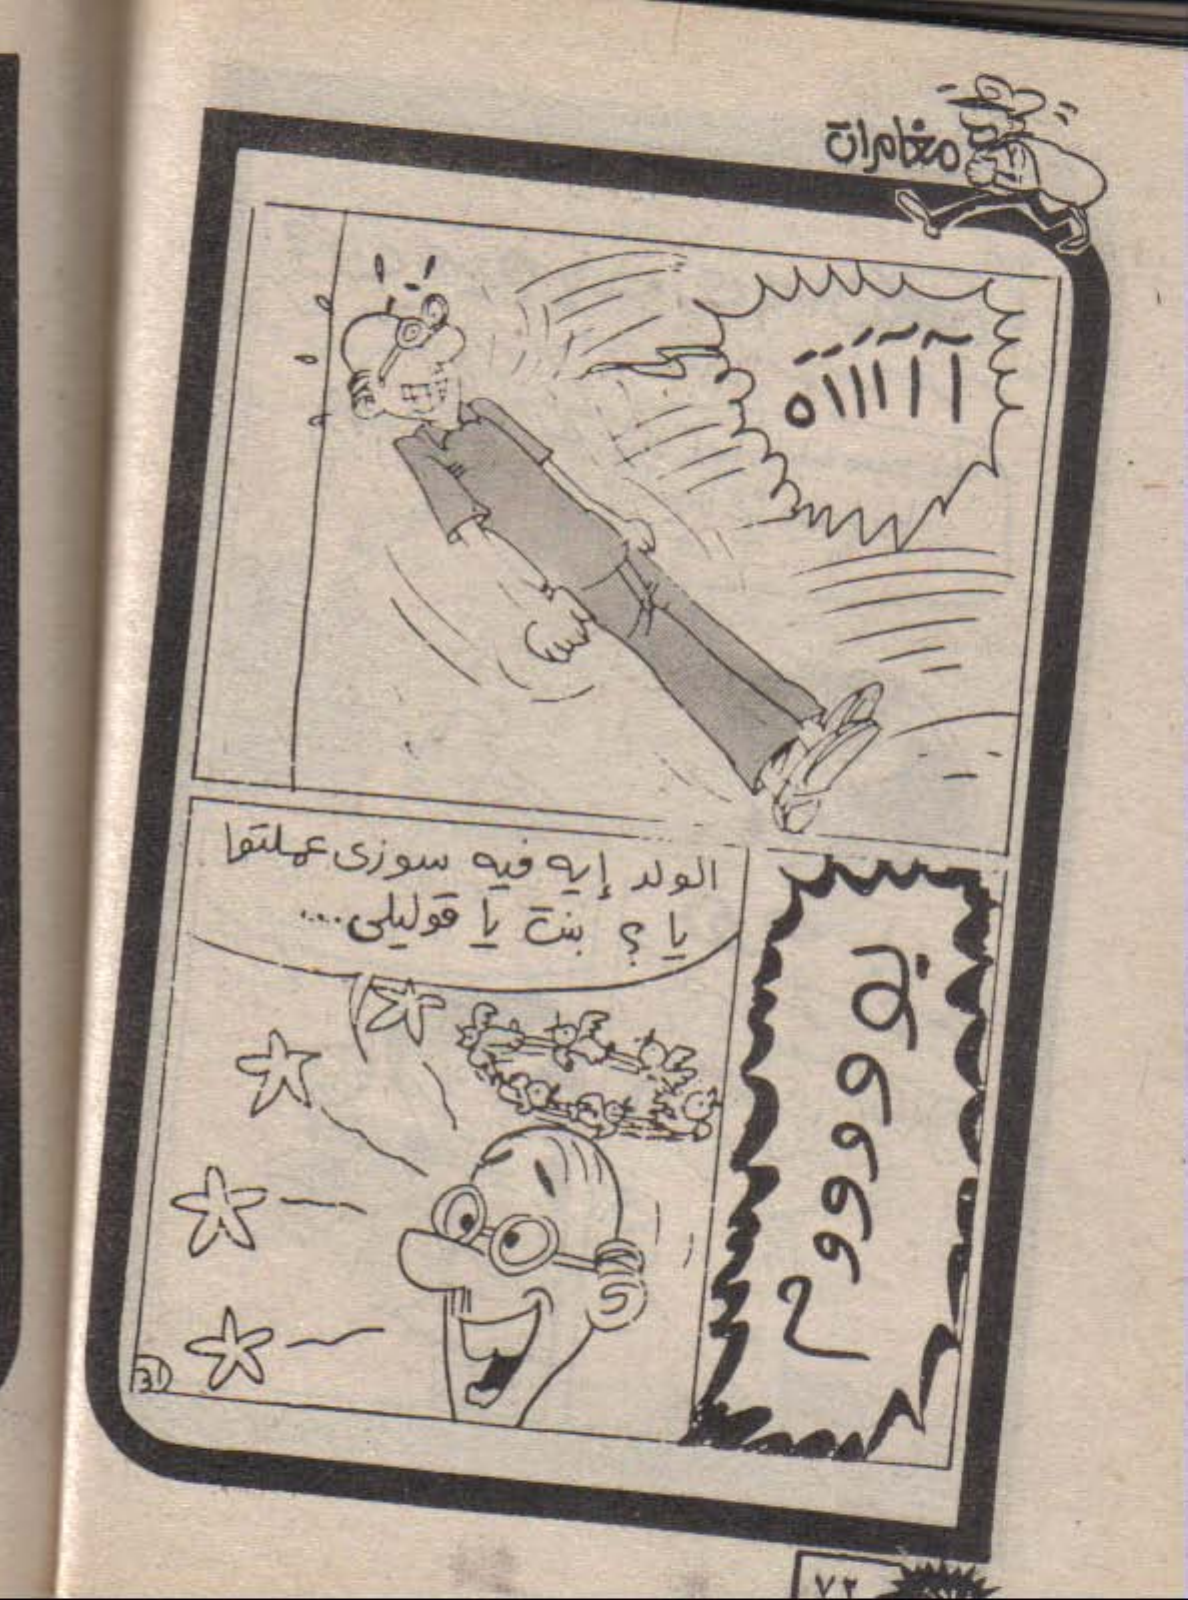 مغامرات
آآآآآآه
الولد إيه فيه سوزى عملتها
يا ؟ بنت يا قوليلى....
بووووووح
31
٧٢